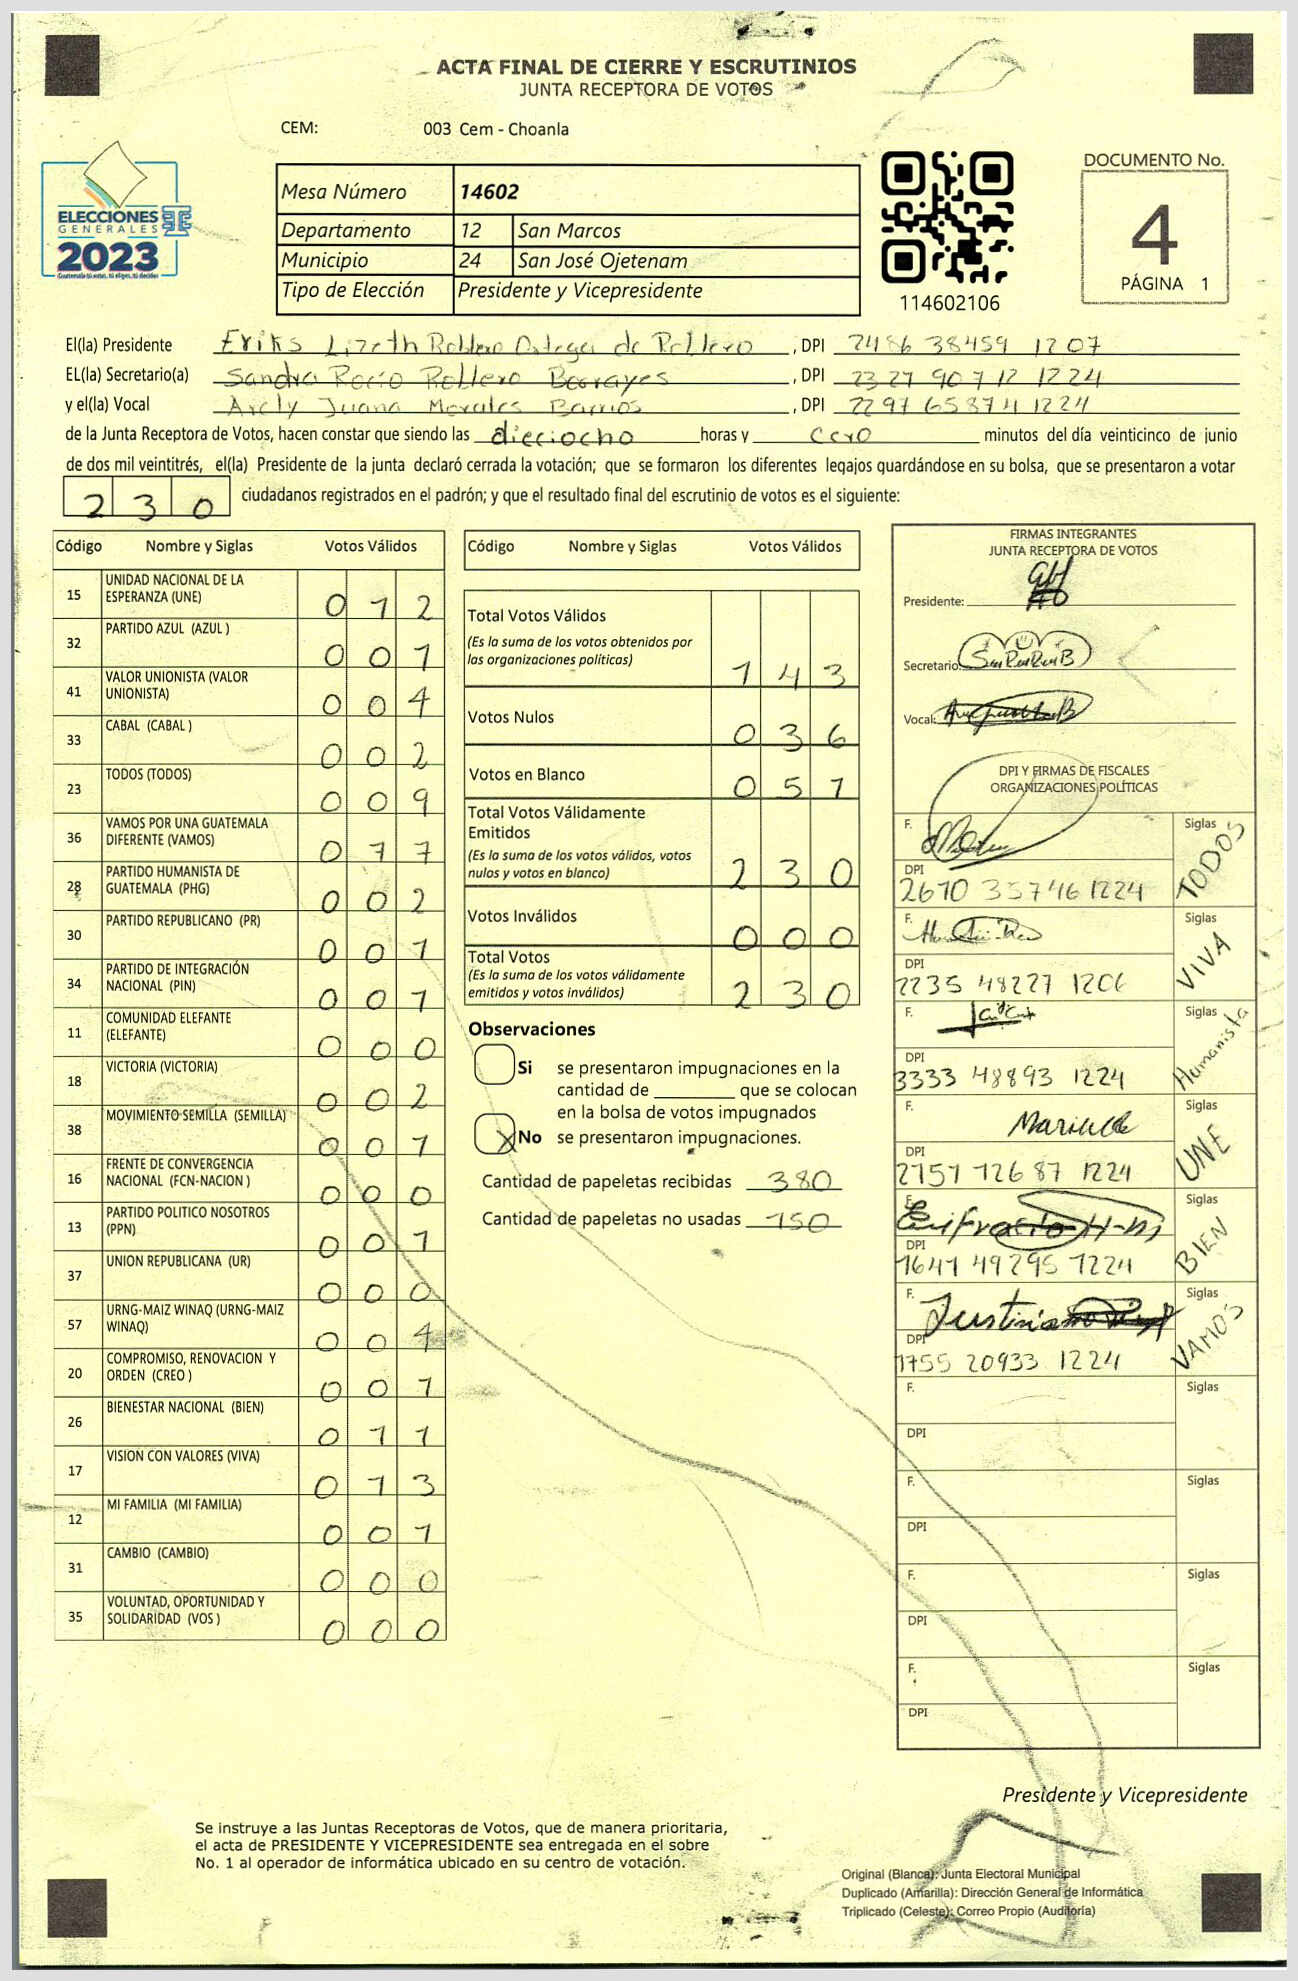 ACTA FINAL DE CIERRE Y ESCRUTINIOS
JUNTA RECEPTORA DE VOTOS
CEM: 003 Cem - Choanla
ELECCIONES
GENERALES
2023
Guatemala tú votas, tú eliges, tú decides
Mesa Número 14602
Departamento 12 San Marcos
Municipio 24 San José Ojetenam
Tipo de Elección Presidente y Vicepresidente
114602106
DOCUMENTO No.
4
PÁGINA 1
El(la) Presidente Lizeth de , DPI 2486 38459 1207
EL(la) Secretario(a) Sandra Rocío , DPI 2327 90712 1224
y el(la) Vocal Arely Juana Morales Barrios , DPI 2297 65874 1224
de la Junta Receptora de Votos, hacen constar que siendo las dieciocho horas y cero minutos del día veinticinco de junio
de dos mil veintitrés, el(la) Presidente de la junta declaró cerrada la votación; que se formaron los diferentes legajos quardándose en su bolsa, que se presentaron a votar
230 ciudadanos registrados en el padrón; y que el resultado final del escrutinio de votos es el siguiente:
Código Nombre y Siglas Votos Válidos
15 UNIDAD NACIONAL DE LA
ESPERANZA (UNE) 012
32 PARTIDO AZUL (AZUL ) 001
41 VALOR UNIONISTA (VALOR
UNIONISTA) 004
33 CABAL (CABAL ) 002
23 TODOS (TODOS) 009
36 VAMOS POR UNA GUATEMALA
DIFERENTE (VAMOS) 077
28 PARTIDO HUMANISTA DE
GUATEMALA (PHG) 002
30 PARTIDO REPUBLICANO (PR) 001
34 PARTIDO DE INTEGRACIÓN
NACIONAL (PIN) 001
11 COMUNIDAD ELEFANTE
(ELEFANTE) 000
18 VICTORIA (VICTORIA) 002
38 MOVIMIENTO SEMILLA (SEMILLA) 001
16 FRENTE DE CONVERGENCIA
NACIONAL (FCN-NACION ) 000
13 PARTIDO POLITICO NOSOTROS
(PPN) 001
37 UNION REPUBLICANA (UR) 000
57 URNG-MAIZ WINAQ (URNG-MAIZ
WINAQ) 004
20 COMPROMISO, RENOVACION Y
ORDEN (CREO ) 001
26 BIENESTAR NACIONAL (BIEN) 011
17 VISION CON VALORES (VIVA) 013
12 MI FAMILIA (MI FAMILIA) 001
31 CAMBIO (CAMBIO) 000
35 VOLUNTAD, OPORTUNIDAD Y
SOLIDARIDAD (VOS ) 000
Código Nombre y Siglas Votos Válidos
Total Votos Válidos
(Es la suma de los votos obtenidos por
las organizaciones políticas) 143
Votos Nulos 036
Votos en Blanco 051
Total Votos Válidamente
Emitidos
(Es la suma de los votos válidos, votos
nulos y votos en blanco) 230
Votos Inválidos 000
Total Votos
(Es la suma de los votos válidamente
emitidos y votos inválidos) 230
Observaciones
Si se presentaron impugnaciones en la
cantidad de ________ que se colocan
en la bolsa de votos impugnados
X No se presentaron impugnaciones.
Cantidad de papeletas recibidas 380
Cantidad de papeletas no usadas 150
FIRMAS INTEGRANTES
JUNTA RECEPTORA DE VOTOS
Presidente:
Secretario:
Vocal:
DPI Y FIRMAS DE FISCALES
ORGANIZACIONES POLÍTICAS
F. Siglas TODOS
DPI
2670 35746 1224
F. Siglas VIVA
DPI
2235 48227 1206
F. Siglas Humanista
DPI
3333 48893 1224
F. Siglas UNE
DPI
2151 12687 1224
F. Siglas BIEN
DPI
1641 49295 1224
F. Siglas VAMOS
DPI
1755 20933 1224
F. Siglas
DPI
F. Siglas
DPI
F. Siglas
DPI
F. Siglas
DPI
Presidente y Vicepresidente
Se instruye a las Juntas Receptoras de Votos, que de manera prioritaria,
el acta de PRESIDENTE Y VICEPRESIDENTE sea entregada en el sobre
No. 1 al operador de informática ubicado en su centro de votación.
Original (Blanca): Junta Electoral Municipal
Duplicado (Amarilla): Dirección General de Informática
Triplicado (Celeste): Correo Propio (Auditoría)